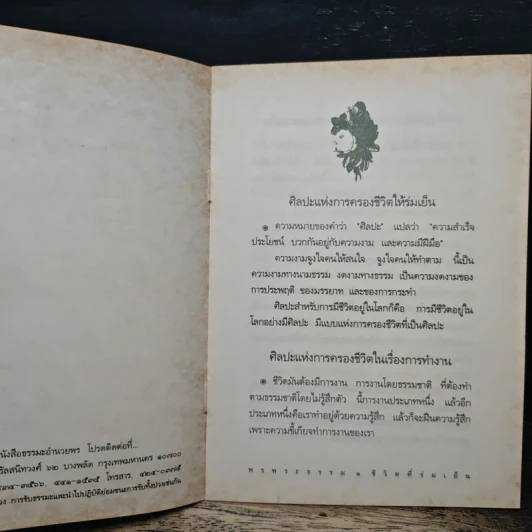 นังสือธรรมะอำนวยพร โปรดติดต่อที่...
รัลสนิทวงศ์ ๖๒ บางพลัด กรุงเทพมหานคร ๑๐๗๐๐
๔๔๑-๑๕๓๕ โทรสาร.
การรับธรรมะและนำไปปฏิบัติย่อมชนะการรับทั้งปวงเช่นกัน
ศิลปะแห่งการครองชีวิตให้ร่มเย็น
๏ ความหมายของคำว่า "ศิลปะ" แปลว่า "ความสำเร็จ
ประโยชน์ บวกกันอยู่กับความงาม และความมีฝีมือ"
ความงามจูงใจคนให้สนใจ จูงใจคนให้ทำตาม นี้เป็น
ความงามทางนามธรรม งดงามทางธรรม เป็นความงดงามของ
การประพฤติ ของมรรยาท และของการกระทำ
ศิลปะสำหรับการมีชีวิตอยู่ในโลกก็คือ การมีชีวิตอยู่ใน
โลกอย่างมีศิลปะ มีแบบแห่งการครองชีวิตที่เป็นศิลปะ
ศิลปะแห่งการครองชีวิตในเรื่องการทำงาน
๏ ชีวิตมันต้องมีการงาน การงานโดยธรรมชาติ ที่ต้องทำ
ตามธรรมชาติโดยไม่รู้สึกตัว นี้การงานประเภทหนึ่ง แล้วอีก
ประเภทหนึ่งคือเราทำอยู่ด้วยความรู้สึก แล้วก็จะฝืนความรู้สึก
เพราะความขี้เกียจทำการงานของเรา
พรพระธรรม ๑ ชีวิตที่ร่มเย็น